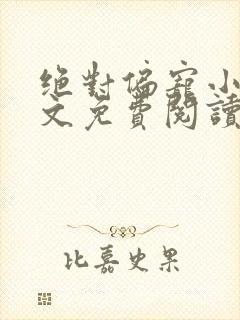 絕對偏寵小
文免費閱讀
比嘉史果